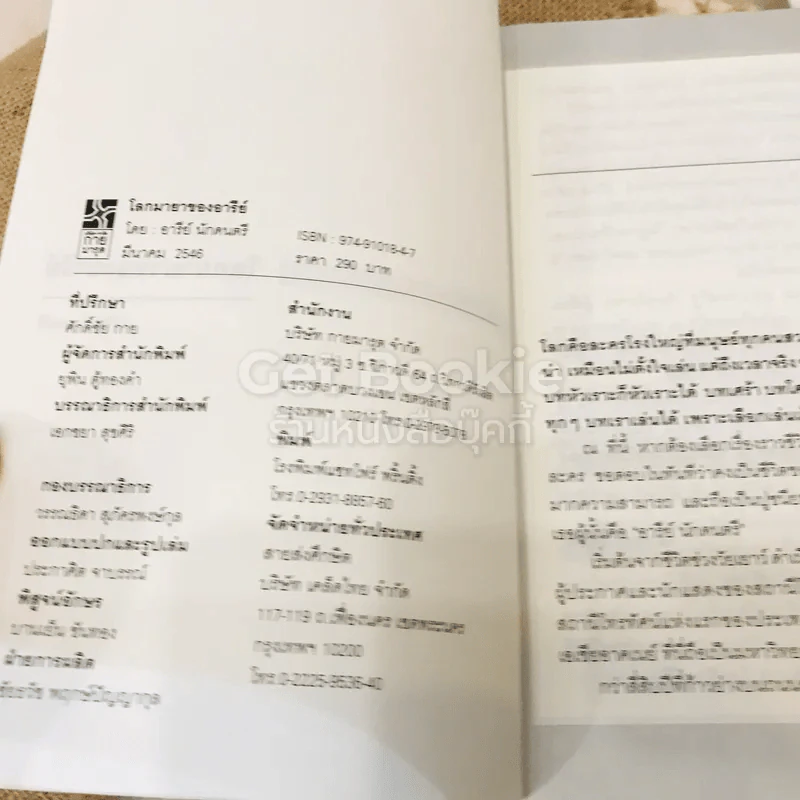 โลกมายาของอารีย์
โดย : อารีย์ นักดนตรี
มีนาคม 2546
ISBN : 974-91018-4-7
ราคา 290 บาท
กาย
มารุต
ที่ปรึกษา
ศักดิ์ชัย กาย
ผู้จัดการสำนักพิมพ์
ยุพิน ตู้ทองคำ
บรรณาธิการสำนักพิมพ์
เอกชยา สุขศิริ
กองบรรณาธิการ
วรรณธิดา สุภัตรพงษ์กุล
ออกแบบปกและรูปเล่ม
ประกาศิต
พิสูจน์อักษร
บานเย็น ขันทอง
ฝ่ายการผลิต
พฤกษ์ปัญญากุล
สำนักงาน
บริษัท กายมารุต จำกัด
แขวงตลาดบางเขน เขตหลักสี่
กรุงเทพฯ 10210
พิมพ์
โรงพิมพ์
โทร.0-2931-8857-60
จัดจำหน่ายทั่วประเทศ
สายส่งศึกษิต
บริษัท เคล็ดไทย จำกัด
117-119 ถ.เฟื่องนคร เขตพระนคร
กรุงเทพฯ 10200
โทร.0-2225-9536-40
Get Bookie
ร้านหนังสือบุ๊คกี้
โลกคือละครโรงใหญ่ที่มนุษย์ทุกคน
นำ เหมือนไม่ตั้งใจเล่น แต่ถึงเวลาจริง
บทหัวเราะก็หัวเราะได้ บทเศร้า
ทุก ๆ บทเราเล่นได้ เพราะเลือกเล่น
ณ ที่นี้ หากต้องเลือกเรื่องราวชีวิ
ละคร ขอตอบในทันทีว่าคงเป็นชีวิตข
มากความสามารถ และถือเป็นปูชนีย
เธอผู้นั้นคือ "อารีย์ นักดนตรี"
เริ่มต้นจากชีวิตช่วงวัยเยาว์
ผู้ประกาศและนักแสดงของสถานี
สถานีโทรทัศน์แห่งแรกของประเท
เอเชียอาคเนย์ ที่นี่ถือเป็นมหาวิทย
กว่าสี่สิบปีที่ก้าวย่าง